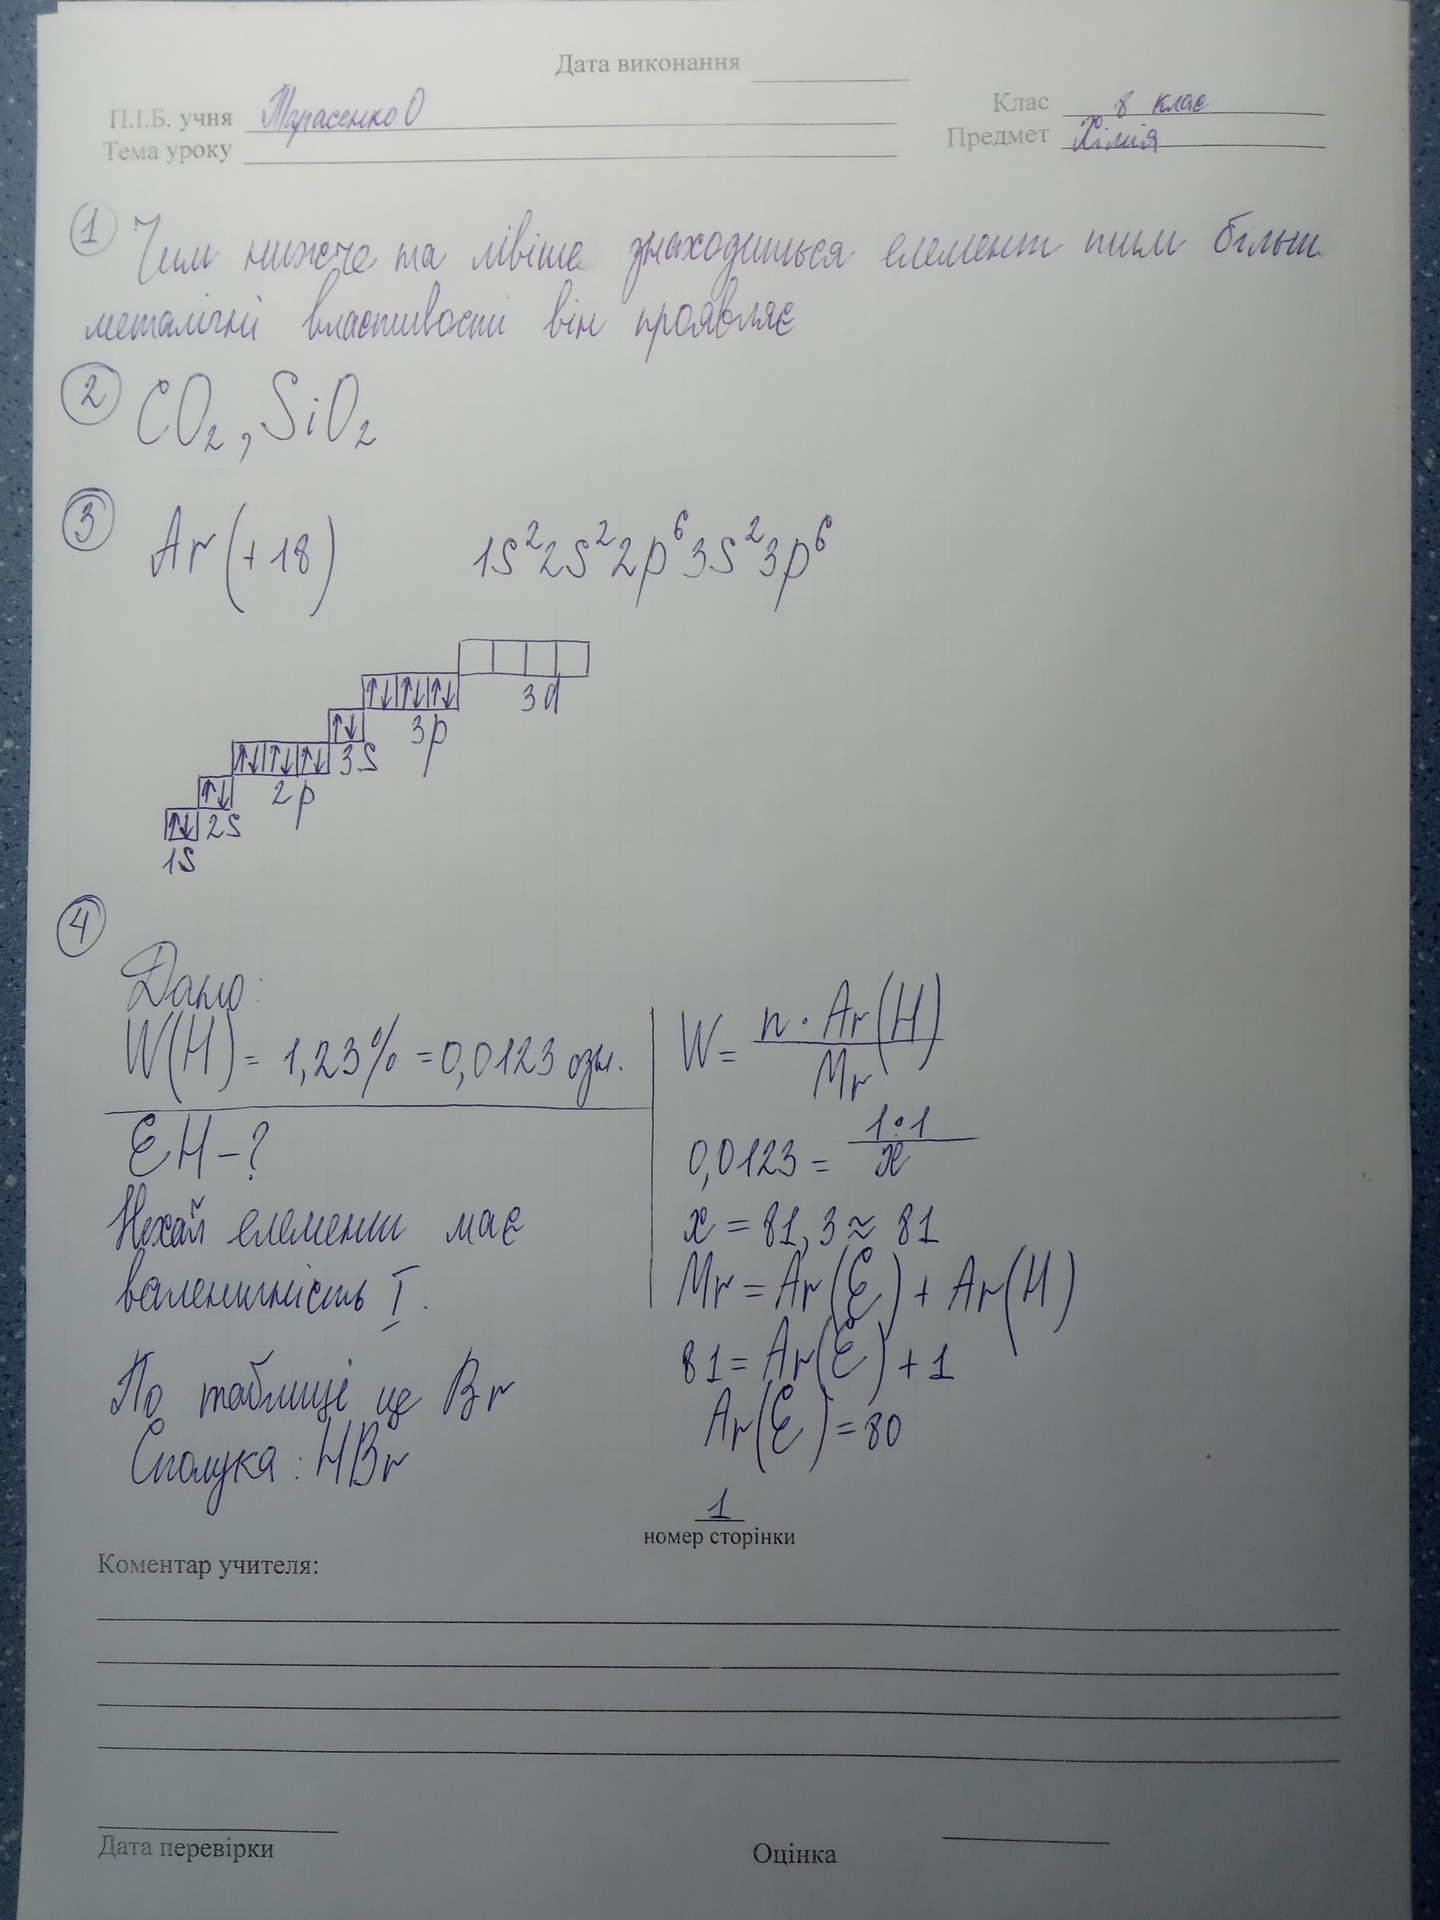 Дата виконання
П.І.Б. учня Тарасенко О Клас 8 клас
Тема уроку Предмет Хімія
1 Чим нижче та лівіше знаходиться елемент тим більш
металічні властивості він проявляє
2 CO2, SiO2
3 Ar (+18) 1s²2s²2p⁶3s²3p⁶
3d
3p
3s
2p
2s
1s
4
Дано:
W(H) = 1,23% = 0,0123 озн.
EH - ?
Нехай елемент має
валентність I.
По таблиці це Br
Сполука: HBr
W = n · Ar(H) / Mr
0,0123 = 1·1 / x
x = 81,3 ≈ 81
Mr = Ar(E) + Ar(H)
81 = Ar(E) + 1
Ar(E) = 80
1
номер сторінки
Коментар учителя:
Дата перевірки Оцінка